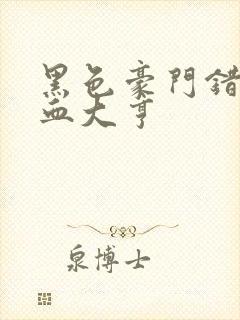 黑色豪門錯
血大亨
泉博士